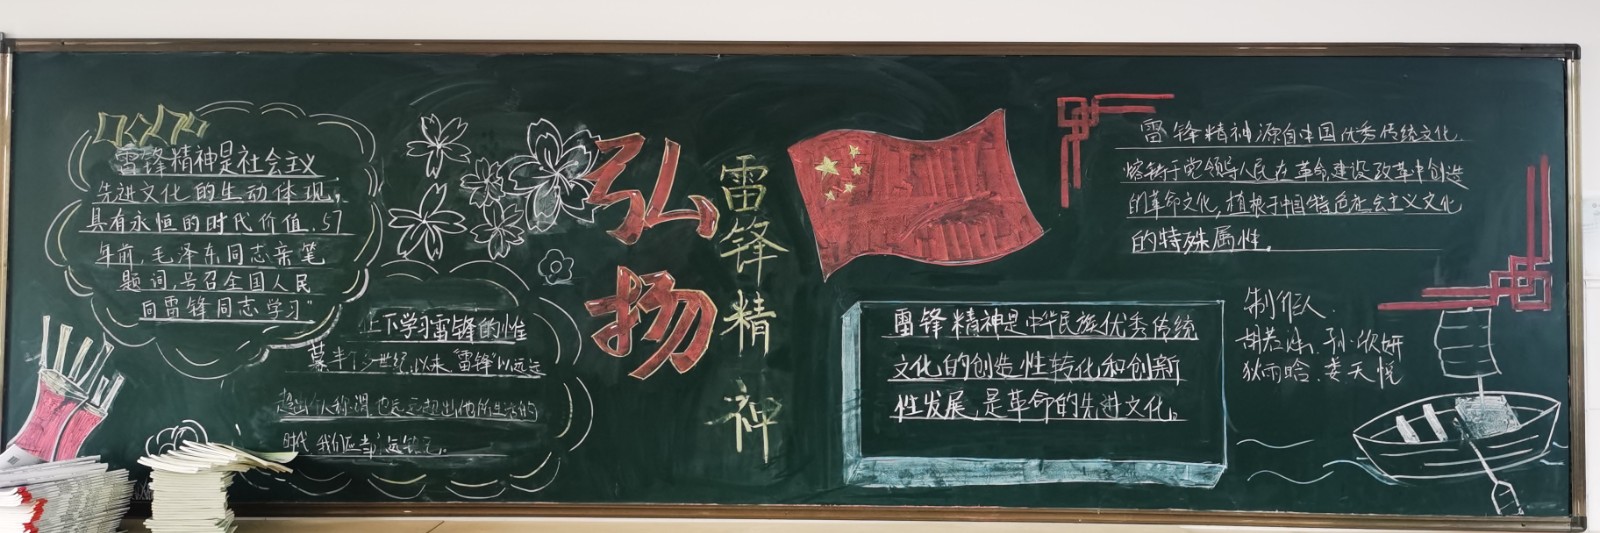 雷锋精神是社会主义
先进文化的生动体现,
具有永恒的时代价值.57
年前,毛泽东同志亲笔
题词,号召全国人民
向雷锋同志学习"
上下学习雷锋的性
半个世纪以来"雷锋"以远远
时代,我们应当
弘扬
雷锋精神
雷锋精神是中华民族优秀传统
文化的创造性转化和创新
性发展,是革命的先进文化。
雷锋精神源自中国优秀传统文化.
熔铸于党领导人民在革命,建设,改革中创造
的革命文化,植根于中国特色社会主义文化
的特殊属性.
制作人.
孙欣妍
狄雨晗.娄天悦